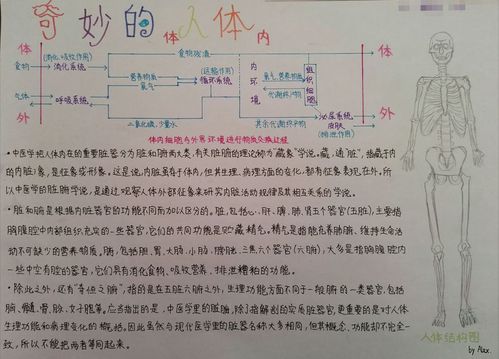 奇妙的人体
体 内
体
食物
(消化、吸收作用)
消化系统
食物残渣
营养物质
氧气
(运输作用)
循环系统
内环境
氧气、营养物质
组织细胞
代谢终产物
体
气体
呼吸系统
外
二氧化碳、少量水
其余代谢终产物
泌尿系统
皮肤
(排泄作用)
外
体内细胞与外界环境进行物质交换过程
•中医学把人体内在的重要脏器分为脏和腑两大类,有关脏腑的理论称为“藏象”学说。藏,通“脏”,指藏于内
的内脏;象,是征象或形象。这是说,内脏虽存于体内,但其生理、病理方面的变化,都有征象表现在外。所
以中医学的脏腑学说,是通过观察人体外部征象来研究内脏活动规律及其相互关系的学说。
•脏和腑是根据内脏器官的功能不同而加以区分的。脏,包括心、肝、脾、肺、肾五个器官(五脏),主要指
胸腹腔中内部组织充实的一些器官,它们的共同功能是贮藏精气。精气是指能充养脏腑、维持生命活
动不可缺少的营养物质。腑,包括胆、胃、大肠、小肠、膀胱、三焦六个器官(六腑),大多是指胸腹腔内
一些中空有腔的器官,它们具有消化食物,吸收营养、排泄糟粕的功能。
•除此之外,还有“奇恒之腑”,指的是在五脏六腑之外,生理功能方面不同于一般腑的一类器官,包括
脑、髓、骨、脉、女子胞等。应当指出的是,中医学里的脏腑,除了指解剖的实质脏器官,更重要的是对人体
生理功能和病理变化的概括。因此虽然与现代医学里的脏器名称大多相同,但其概念、功能却不完全一
致,所以不能把两者等同起来。
人体结构图
by Max.